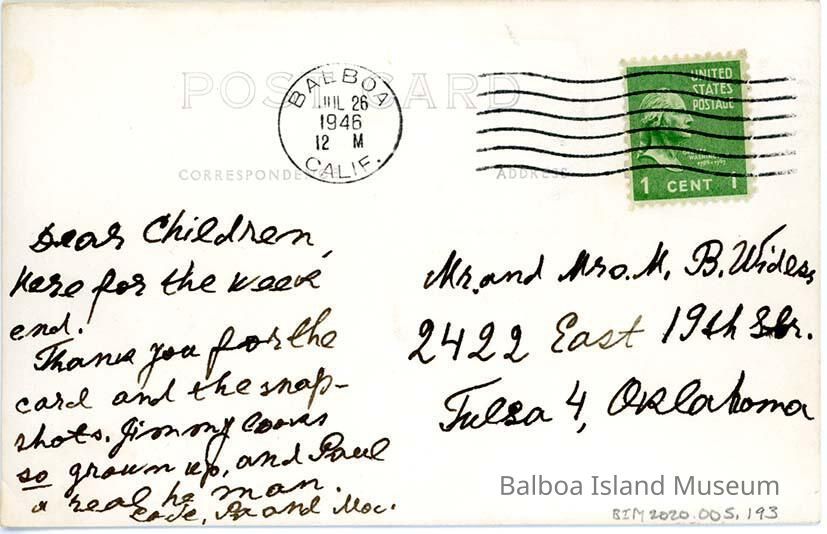 POST CARD
BALBOA
JUL 26
1946
12 M
CALIF.
UNITED
STATES
POSTAGE
1 CENT 1
ADDRESS
Dear Children,
Here for the week
end.
Thank you for the
card and the snap-
shots. Jimmy looks
so grown up, and Paul
a real he man.
Love, Pa and Moc.
Mr. and Mrs. M. B. Widess
2422 East 19th Str.
Tulsa 4, Oklahoma
Balboa Island Museum
BIM2020.005.193